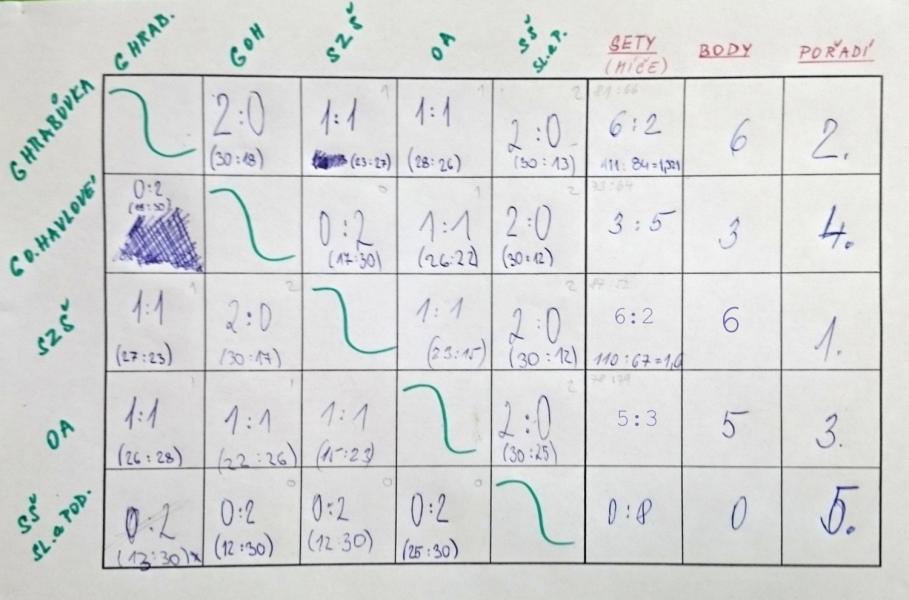 GHRAB. GOH SZŠ OA SŠ SL.aP. SETY (MÍČE) BODY POŘADÍ
GHRABŮVKA 2:0 1:1 1:1 2:0 6:2 6 2.
(30:18) (23:27) (28:26) (30:13) 111:84=1,321
GO.HAVLOVÉ 0:2 0:2 1:1 2:0 3:5 3 4.
(18:30) (17:30) (26:22) (30:12)
SZŠ 1:1 2:0 1:1 2:0 6:2 6 1.
(27:23) (30:17) (23:15) (30:12) 110:67=1,6
OA 1:1 1:1 1:1 2:0 5:3 5 3.
(26:28) (22:26) (15:23) (30:25)
SŠ SL.aPOD. 0:2 0:2 0:2 0:2 0:8 0 5.
(13:30) (12:30) (12:30) (25:30)